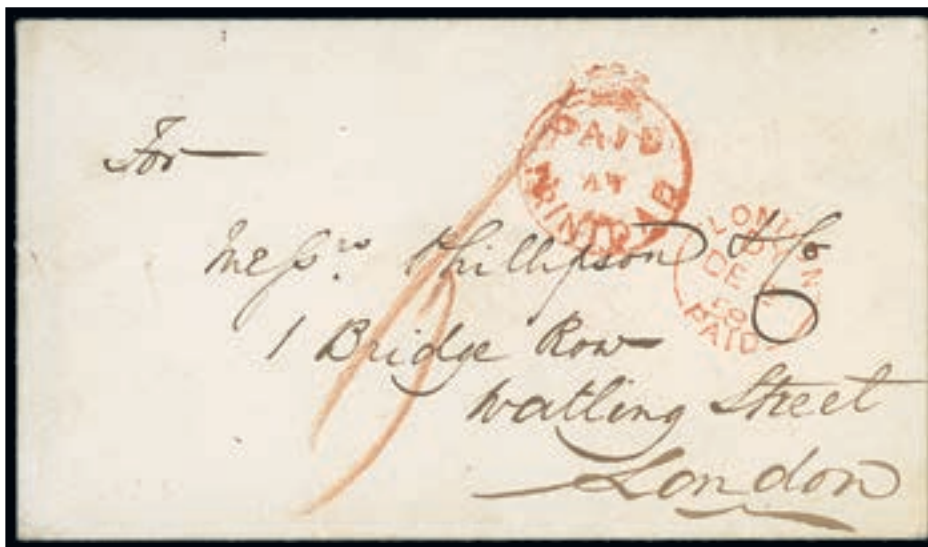 PAID
AT
TRINIDAD
For
LONDON
DE
PAID
Messrs Phillipson & Co
1 Bridge Row
Watling Street
London